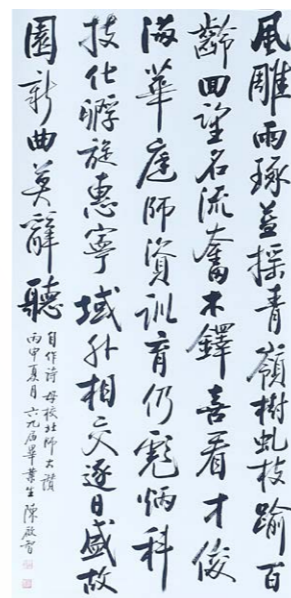 風雕雨琢蓋採青嶺樹虬枝踰百
齡回望名流奮木鐸喜看才俊
滿華庭師資訓育仍彪炳科
技化孵旋惠寧域外相交逐日盛故
園新曲莫辭聽
自作詩 母校北師大讚
丙申夏月 六九届畢業生 陳啟智